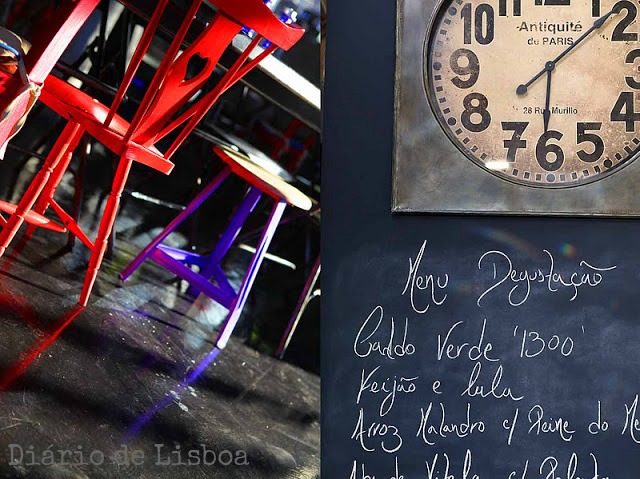 10 2
Antiquité
de PARIS
9 3
8 28 Rue Murillo 4
7 6 5
Menu Degustação
Caldo Verde '1300'
Feijão e lula
Arroz Malandro c/ Peixe do
Vitela c/ Polenta
Diário de Lisboa